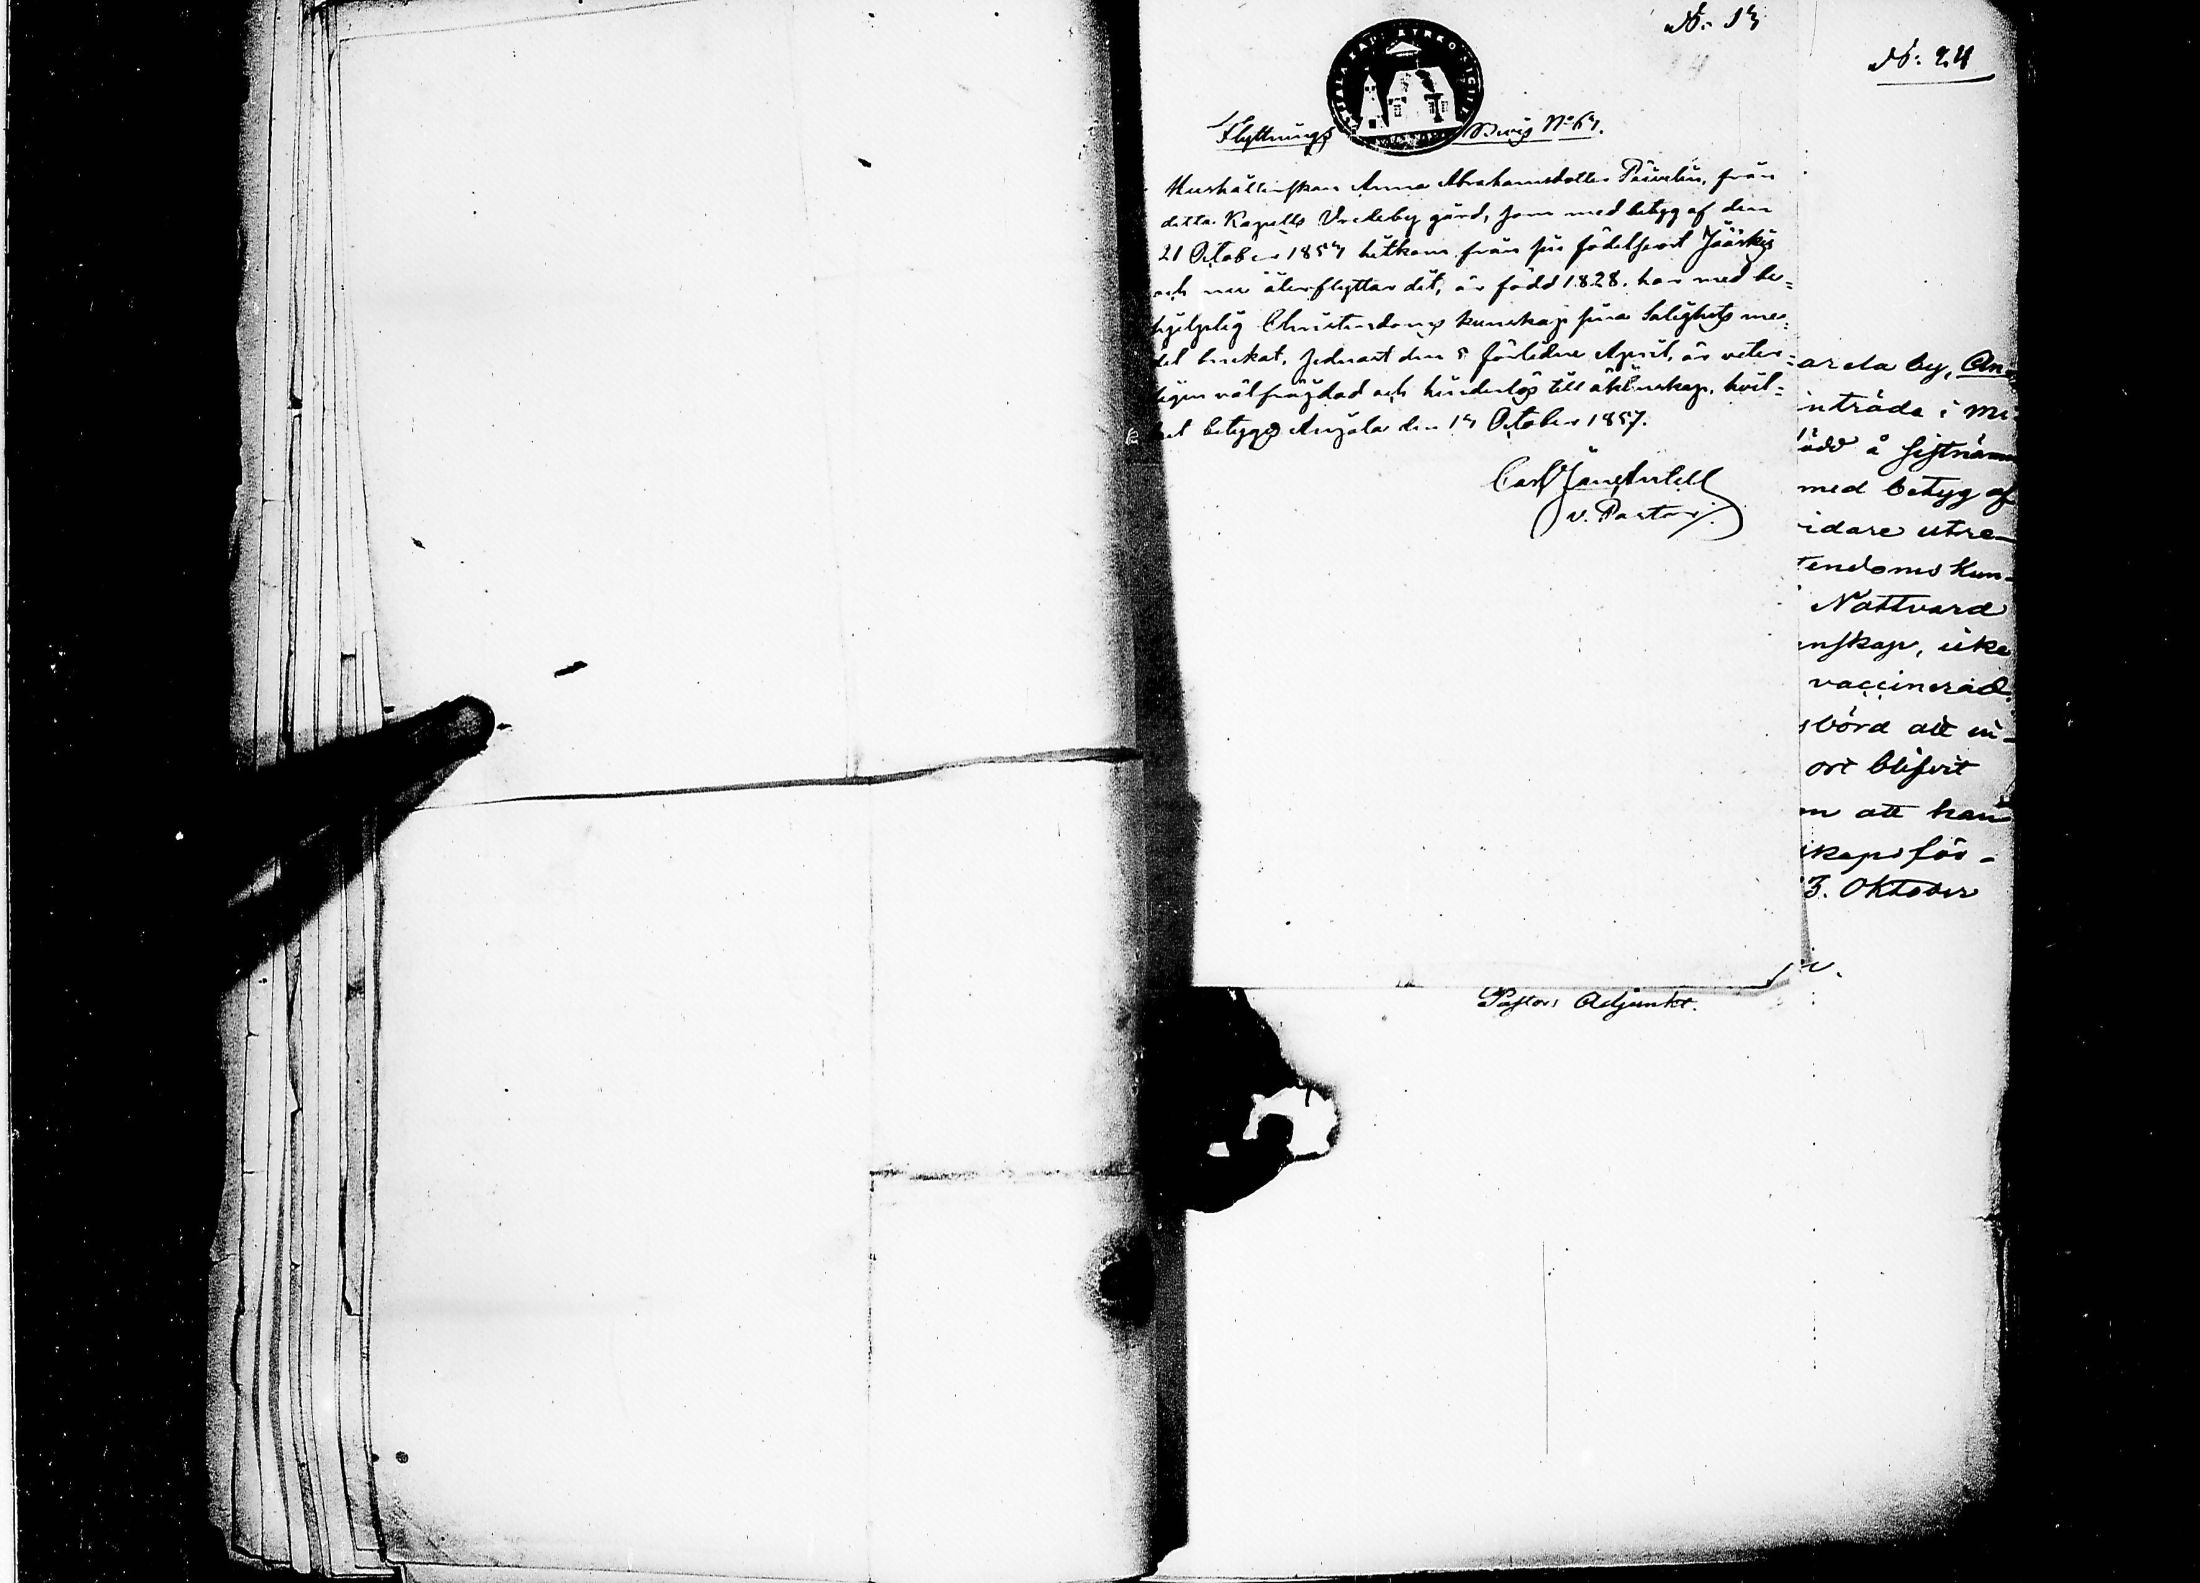 No. 13
No. 24
Flyttnings Bevis No 67.
Hushållerskan Anna Abrahamsdotter Päivelin, från
detta Kapells Vredeby gård, som med betyg af den
21 October 1854 hitkom från sin födelseort Jääskis
och nu återflyttar dit, är född 1828. har med be-
hjelplig Christendoms kunskap sina Salighets me-
del brukat, sednast den 5 förledne April, är veter-
ligen välfräjdad och hinderlös till äktenskap. hvil-
ket betygas Anjala den 17 October 1857.
Carl
v. Pastor.
arela by, An-
inträda i
född å sistnämn
med betyg af
vidare utre-
tendoms kun-
Nattvard
enskap, icke
vaccinerad.
sbörd att
ort blifvit
m att han
skaps för-
3. Oktober
Pastors Adjunkt.